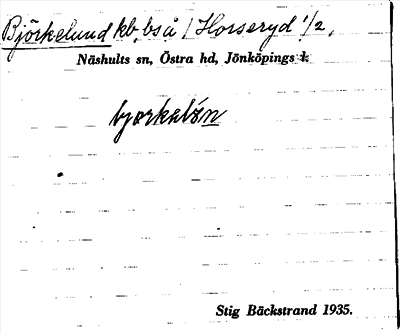 Björkelund kb, bs å / Horseryd 1/2,
Näshults sn, Östra hd, Jönköpings l.
bjørkəløn
Stig Bäckstrand 1935.